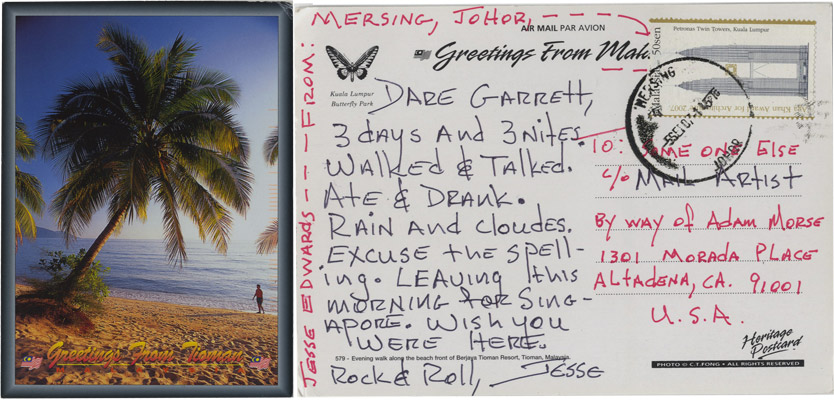 Greetings From Tioman
JESSE EDWARDS - - - FROM:
MERSING, JOHOR, - - -
AIR MAIL PAR AVION
Greetings From
Kuala Lumpur
Butterfly Park
Petronas Twin Towers, Kuala Lumpur
50sen
2007
MERSING
JOHOR
DARE GARRETT,
3 days And 3 Nites
WALKED & TALKED.
AtE & DRANK.
RAIN AND CLOUDES.
EXCUSE the SPELL-
ing. LEAVING this
MORNING for SING-
APORE. WISH you
WERE HERE.
Rock & Roll, JESSE
TO: SOME ONE ELSE
c/o MAIL ARTIST
By way of ADAM MORSE
1301 MORADA PLACE
ALTADENA, CA. 91001
U.S.A.
579 - Evening walk along the beach front of Berjaya Tioman Resort, Tioman, Malaysia.
Heritage
Postcard
PHOTO © C.T.FONG • ALL RIGHTS RESERVED